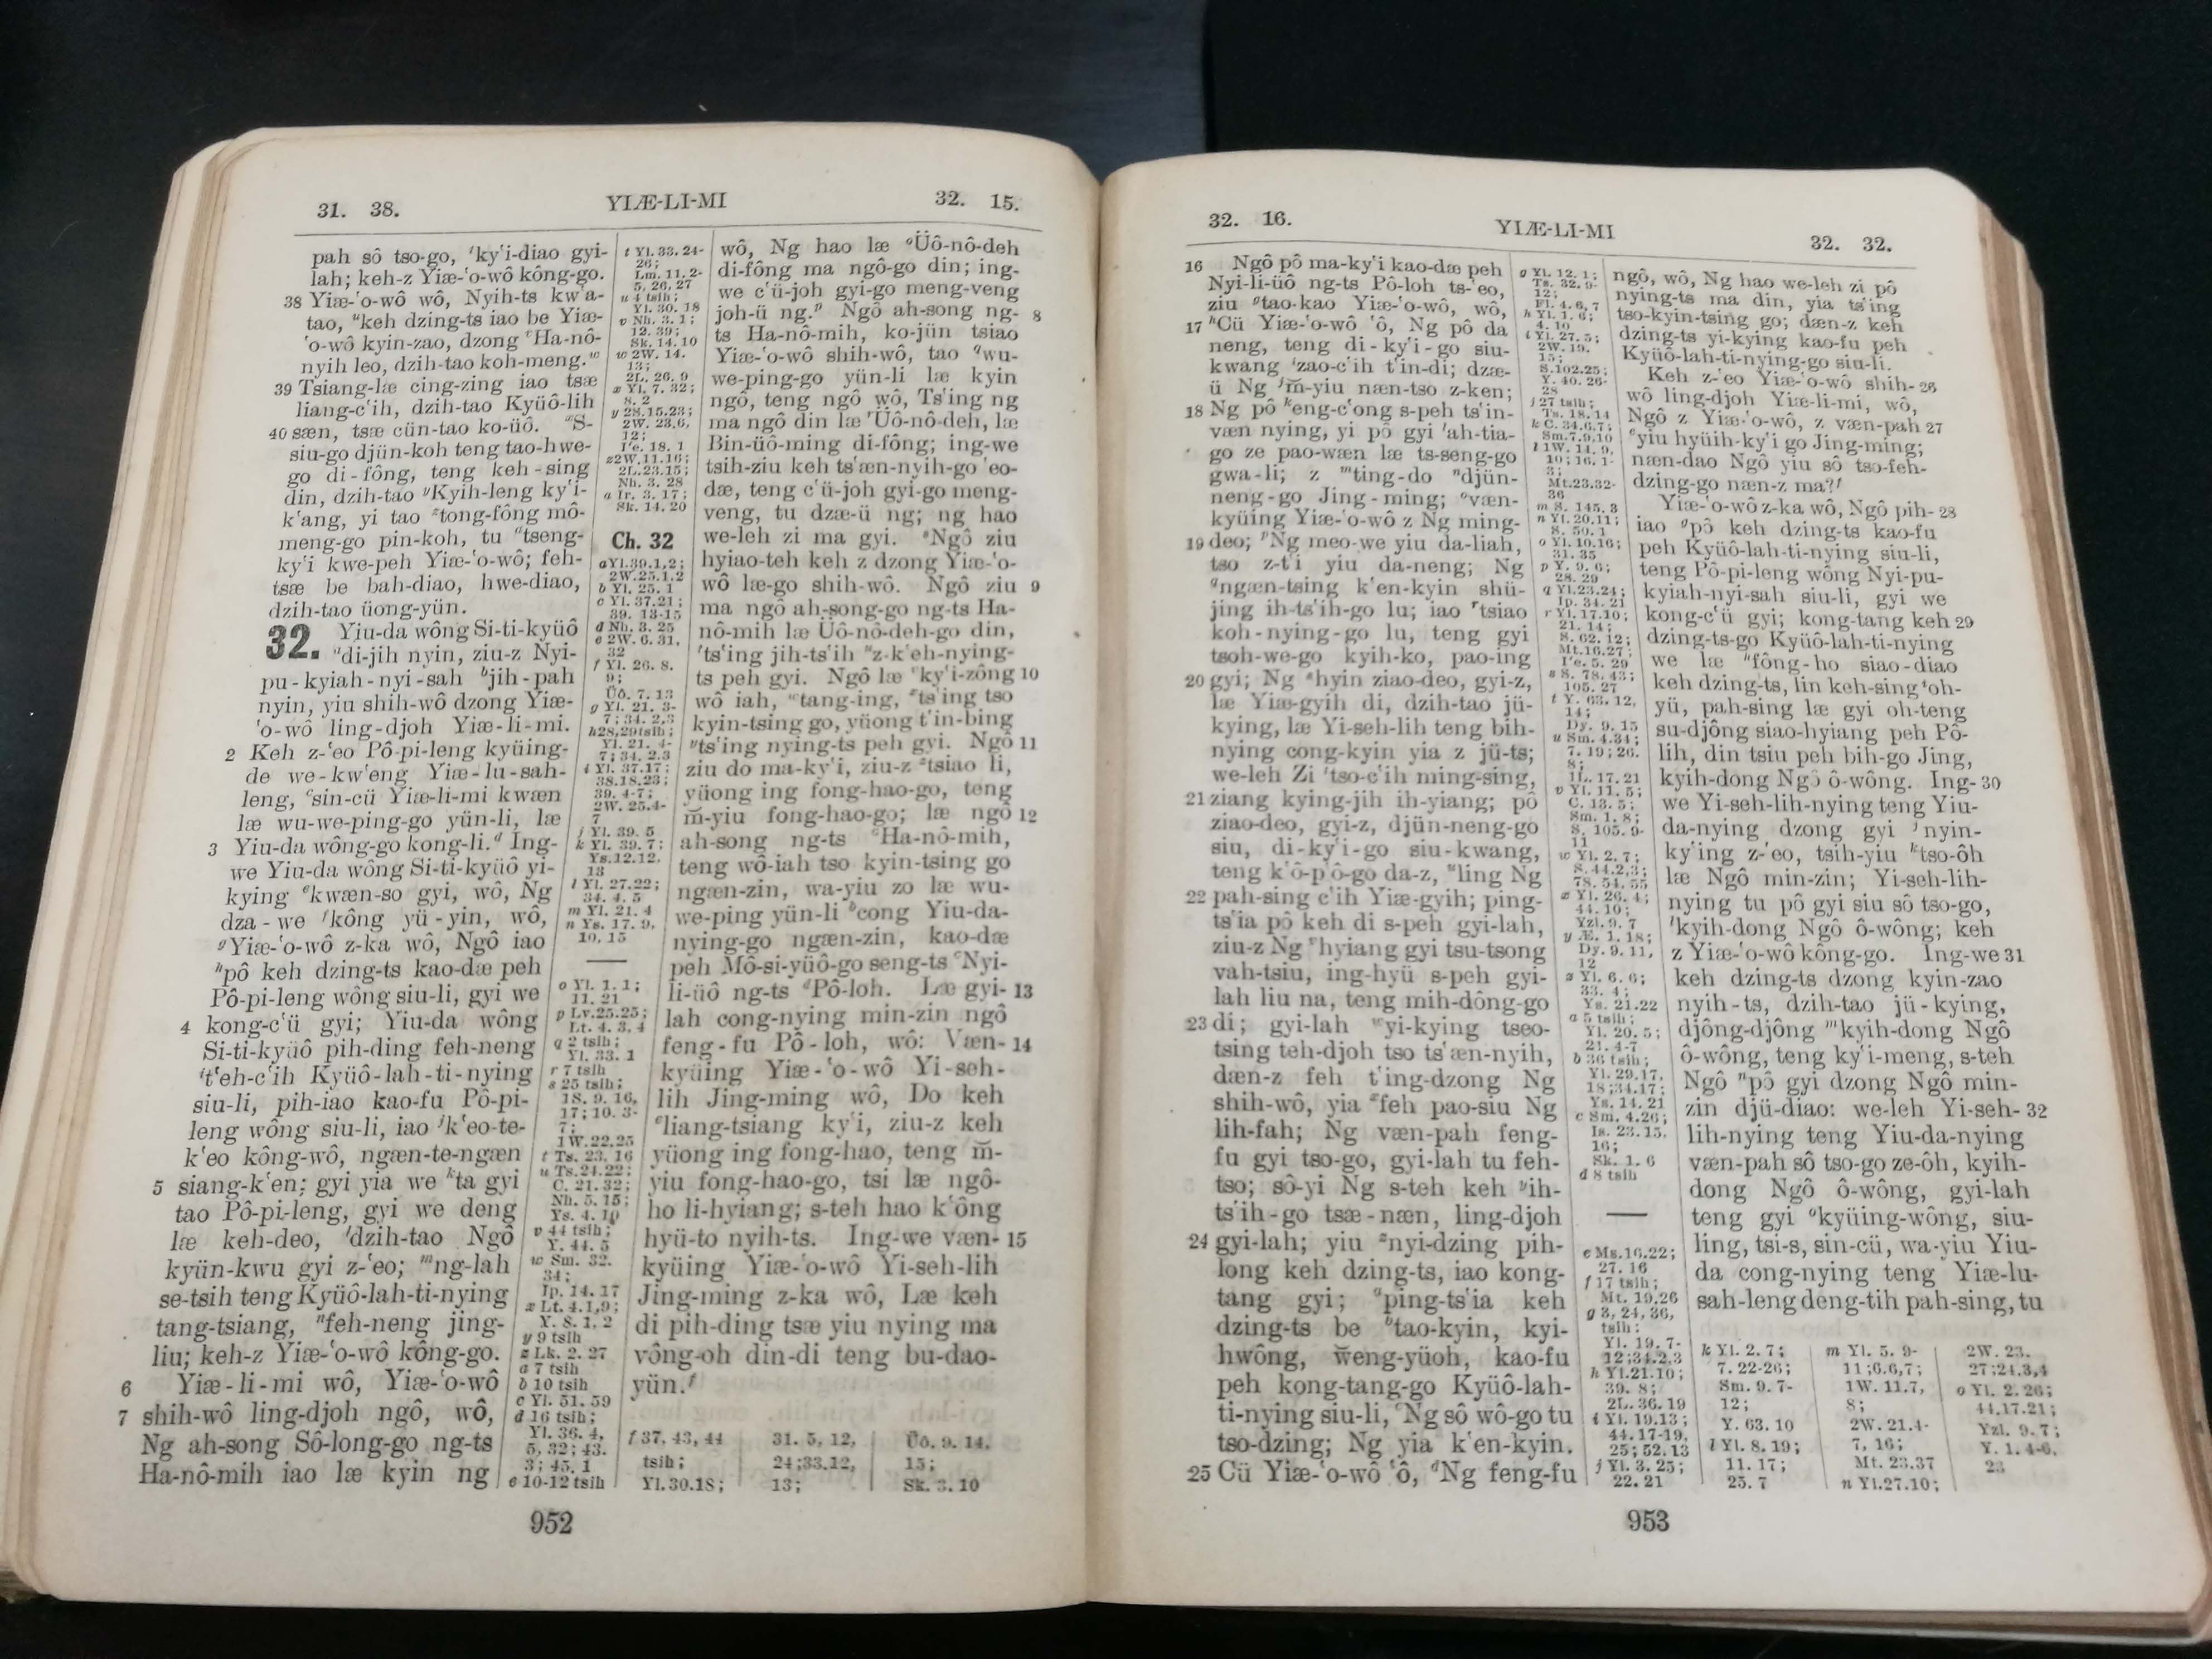 31. 38.
YIÆ-LI-MI
32. 15.
pah sô tso-go, ʻky'i-diao gyi-
lah; keh-z Yiæ-ʻo-wô kông-go.
38 Yiæ-ʻo-wô wô, Nyih-ts kw'a-
tao, "keh dzing-ts iao be Yiæ-
ʻo-wô kyin-zao, dzong ᵛHa-nô-
nyih leo, dzih-tao koh-meng.ʷ
39 Tsiang-læ cing-zing iao tsæ
liang-c'ih, dzih-tao Kyüô-lih
40 sæn, tsæ cün-tao ko-üô. ˣS-
siu-go djün-koh teng tao-hwe-
go di-fông, teng keh-sing
din, dzih-tao ʸKyih-leng ky'i-
k'ang, yi tao ᶻtong-fông mô-
meng-go pin-koh, tu ᵃtseng-
ky'i kwe-peh Yiæ-ʻo-wô; feh-
tsæ be bah-diao, hwe-diao,
dzih-tao üong-yün.
32. Yiu-da wông Si-ti-kyüô
ᵃdi-jih nyin, ziu-z Nyi-
pu-kyiah-nyi-sah ᵇjih-pah
nyin, yiu shih-wô dzong Yiæ-
ʻo-wô ling-djoh Yiæ-li-mi.
2 Keh z-ʻeo Pô-pi-leng kyüing-
de we-kw'eng Yiæ-lu-sah-
leng, ᶜsin-cü Yiæ-li-mi kwæn
læ wu-we-ping-go yün-li, læ
3 Yiu-da wông-go kong-li.ᵈ Ing-
we Yiu-da wông Si-ti-kyüô yi-
kying ᵉkwæn-so gyi, wô, Ng
dza-we ᶠkông yü-yin, wô,
ᵍYiæ-ʻo-wô z-ka wô, Ngô iao
ʰpô keh dzing-ts kao-dæ peh
Pô-pi-leng wông siu-li, gyi we
4 kong-c'ü gyi; Yiu-da wông
Si-ti-kyüô pih-ding feh-neng
ⁱt'eh-c'ih Kyüô-lah-ti-nying
siu-li, pih-iao kao-fu Pô-pi-
leng wông siu-li, iao ʲk'eo-te-
k'eo kông-wô, ngæn-te-ngæn
5 siang-k'en; gyi yia we ᵏta gyi
tao Pô-pi-leng, gyi we deng
læ keh-deo, ˡdzih-tao Ngô
kyün-kwu gyi z-ʻeo; ᵐng-lah
se-tsih teng Kyüô-lah-ti-nying
tang-tsiang, ⁿfeh-neng jing-
liu; keh-z Yiæ-ʻo-wô kông-go.
6 Yiæ-li-mi wô, Yiæ-ʻo-wô
7 shih-wô ling-djoh ngô, wô,
Ng ah-song Sô-long-go ng-ts
Ha-nô-mih iao læ kyin ng
t Yl. 33. 24-
26;
Lm. 11. 2-
5, 26, 27
u 4 tsih;
Yl. 30. 18
v Nh. 3. 1;
12. 39;
Sk. 14. 10
w 2W. 14.
13;
2L. 26. 9
x Yl. 7. 32;
8. 2
y 2S. 15.23;
2W. 23.6,
12;
I'e. 18. 1
z 2W.11.16;
2L.23.15;
Nh. 3. 28
a Ir. 3. 17;
Sk. 14. 20
Ch. 32
a Yl.39.1,2;
2W.25.1,2
b Yl. 25. 1
c Yl. 37.21;
39. 13-15
d Nh. 3. 25
e 2W. 6. 31,
32
f Yl. 26. 8.
9;
Üô. 7. 13
g Yl. 21. 3-
7; 34. 2,3
h28,29tsih;
Yl. 21. 4-
7; 34. 2.3
i Yl. 37.17;
38.18.23;
39. 4-7;
2W. 25.4-
7
j Yl. 39. 5
k Yl. 39. 7;
Ys.12.12,
13
l Yl. 27.22;
34. 4. 5
m Yl. 21. 4
n Ys. 17. 9,
10, 15
o Yl. 1. 1;
11. 21
p Lv.25.25;
Lt. 4. 3, 4
q 2 tsih;
Yl. 33. 1
r 7 tsih
s 25 tsih;
1S. 9. 16,
17; 10. 3-
7;
1W.22.25
t Ts. 23. 16
u Ts.24.22;
C. 21. 32;
Nh. 5. 15;
Ys. 4. 10
v 44 tsih;
Y. 44. 5
w Sm. 32.
34;
Ip. 14. 17
x Lt. 4.1,9;
Y. 8. 1, 2
y 9 tsih
z Lk. 2. 27
a 7 tsih
b 10 tsih
c Yl. 51. 59
d 16 tsih;
Yl. 36. 4,
5, 32; 43.
3; 45. 1
e 10-12 tsih
wô, Ng hao læ ᵒÜô-nô-deh
di-fông ma ngô-go din; ing-
we c'ü-joh gyi-go meng-veng
joh-ü ng.ᵖ Ngô ah-song ng- 8
ts Ha-nô-mih, ko-jün tsiao
Yiæ-ʻo-wô shih-wô, tao ᵠwu-
we-ping-go yün-li læ kyin
ngô, teng ngô wô, Ts'ing ng
ma ngô din læ ʳÜô-nô-deh, læ
Bin-üô-ming di-fông; ing-we
tsih-ziu keh ts'æn-nyih-go ʻeo-
dæ, teng c'ü-joh gyi-go meng-
veng, tu dzæ-ü ng; ng hao
we-leh zi ma gyi. ˢNgô ziu
hyiao-teh keh z dzong Yiæ-ʻo-
wô læ-go shih-wô. Ngô ziu 9
ma ngô ah-song-go ng-ts Ha-
nô-mih læ Üô-nô-deh-go din,
ᵗts'ing jih-ts'ih ᵘz-k'eh-nying-
ts peh gyi. Ngô læ ᵛky'i-zông 10
wô iah, ʷtang-ing, ˣts'ing tso
kyin-tsing go, yüong t'in-bing
ʸts'ing nying-ts peh gyi. Ngô 11
ziu do ma-ky'i, ziu-z ᶻtsiao li,
yüong ing fong-hao-go, teng
m̆-yiu fong-hao-go; læ ngô 12
ah-song ng-ts ᵃHa-nô-mih,
teng wô-iah tso kyin-tsing go
ngæn-zin, wa-yiu zo læ wu-
we-ping yün-li ᵇcong Yiu-da-
nying-go ngæn-zin, kao-dæ
peh Mô-si-yüô-go seng-ts ᶜNyi-
li-üô ng-ts ᵈPô-loh. Læ gyi- 13
lah cong-nying min-zin ngô
feng-fu Pô-loh, wô: Væn- 14
kyüing Yiæ-ʻo-wô Yi-seh-
lih Jing-ming wô, Do keh
ᵉliang-tsiang ky'i, ziu-z keh
yüong ing fong-hao, teng m̆-
yiu fong-hao-go, tsi læ ngô-
ho li-hyiang; s-teh hao k'ông
hyü-to nyih-ts. Ing-we væn- 15
kyüing Yiæ-ʻo-wô Yi-seh-lih
Jing-ming z-ka wô, Læ keh
di pih-ding tsæ yiu nying ma
vông-oh din-di teng bu-dao-
yün.ᶠ
f 37, 43, 44
tsih;
Yl.30.18;
31. 5, 12,
24;33.12,
13;
Üô. 9. 14,
15;
Sk. 3. 10
952
32. 16.
YIÆ-LI-MI
32. 32.
16 Ngô pô ma-ky'i kao-dæ peh
Nyi-li-üô ng-ts Pô-loh ts-ʻeo,
ziu ᵍtao-kao Yiæ-ʻo-wô, wô,
17 ʰCü Yiæ-ʻo-wô ʻô, Ng pô da
neng, teng di-ky'i-go siu-
kwang ⁱzao-c'ih t'in-di; dzæ-
ü Ng ʲm̆-yiu næn-tso z-ken;
18 Ng pô ᵏeng-c'ong s-peh ts'in-
væn nying, yi pô gyi ˡah-tia-
go ze pao-wæn læ ts-seng-go
gwa-li; z ᵐting-do ⁿdjün-
neng-go Jing-ming; ᵒvæn-
kyüing Yiæ-ʻo-wô z Ng ming-
19 deo; ᵖNg meo-we yiu da-liah,
tso z-t'i yiu da-neng; Ng
ᵠngæn-tsing k'en-kyin shü-
jing ih-ts'ih-go lu; iao ʳtsiao
koh-nying-go lu, teng gyi
tsoh-we-go kyih-ko, pao-ing
20 gyi; Ng ˢhyin ziao-deo, gyi-z,
læ Yiæ-gyih di, dzih-tao jü-
kying, læ Yi-seh-lih teng bih-
nying cong-kyin yia z jü-ts;
we-leh Zi ᵗtso-c'ih ming-sing,
21 ziang kying-jih ih-yiang; pô
ziao-deo, gyi-z, djün-neng-go
siu, di-ky'i-go siu-kwang,
teng k'ô-p'ô-go da-z, ᵘling Ng
22 pah-sing c'ih Yiæ-gyih; ping-
ts'ia pô keh di s-peh gyi-lah,
ziu-z Ng ᵛhyiang gyi tsu-tsong
vah-tsiu, ing-hyü s-peh gyi-
lah liu na, teng mih-dông-go
23 di; gyi-lah ʷyi-kying tseo-
tsing teh-djoh tso ts'æn-nyih,
dæn-z feh t'ing-dzong Ng
shih-wô, yia ˣfeh pao-siu Ng
lih-fah; Ng væn-pah feng-
fu gyi tso-go, gyi-lah tu feh-
tso; sô-yi Ng s-teh keh ʸih-
ts'ih-go tsæ-næn, ling-djoh
24 gyi-lah; yiu ᶻnyi-dzing pih-
long keh dzing-ts, iao kong-
tang gyi; ᵃping-ts'ia keh
dzing-ts be ᵇtao-kyin, kyi-
hwông, w̆eng-yüoh, kao-fu
peh kong-tang-go Kyüô-lah-
ti-nying siu-li, ᶜNg sô wô-go tu
tso-dzing; Ng yia k'en-kyin.
25 Cü Yiæ-ʻo-wô ʻô, ᵈNg feng-fu
g Yl. 12. 1;
Ts. 32. 9-
12;
Fl. 4. 6, 7
h Yl. 1. 6;
4. 10
i Yl. 27. 5;
2W. 19.
15;
S.102.25;
Y. 40. 26-
28
j 27 tsih;
Ts. 18. 14
k C. 34.6,7;
Sm.7.9,10
l 1W. 14. 9,
10; 16. 1-
3;
Mt.23.32-
36
m S. 145. 3
n Yl.20.11;
S. 50. 1
o Yl. 10.16;
31. 35
p Y. 9. 6;
28. 29
q Yl.23.24;
Ip. 34. 21
r Yl. 17.10;
21. 14;
S. 62. 12;
Mt.16.27;
I'e. 5. 29
s S. 78. 43;
105. 27
t Y. 63. 12,
14;
Dy. 9. 15
u Sm. 4.34;
7. 19; 26.
8;
1L. 17. 21
v Yl. 11. 5;
C. 13. 5;
Sm. 1. 8;
S. 105. 9-
11
w Yl. 2. 7;
S.44.2,3;
78. 54, 55
x Yl. 26. 4;
44. 10;
Yzl. 9. 7
y Æ. 1. 18;
Dy. 9. 11,
12
z Yl. 6. 6;
33. 4;
Ys. 21.22
a 5 tsih;
Yl. 20. 5;
21. 4-7
b 36 tsih;
Yl. 29.17,
18;34.17;
Ys. 14. 21
c Sm. 4.26;
Is. 23. 15,
16;
Sk. 1. 6
d 8 tsih
e Ms.16.22;
27. 16
f 17 tsih;
Mt. 19.26
g 3, 24, 36,
tsih;
Yl. 19. 7-
12;34.2,3
h Yl.21.10;
39. 8;
2L. 36. 19
i Yl. 19.13;
44. 17-19,
25; 52. 13
j Yl. 3. 25;
22. 21
ngô, wô, Ng hao we-leh zi pô
nying-ts ma din, yia ts'ing
tso-kyin-tsing go; dæn-z keh
dzing-ts yi-kying kao-fu peh
Kyüô-lah-ti-nying-go siu-li.
Keh z-ʻeo Yiæ-ʻo-wô shih- 26
wô ling-djoh Yiæ-li-mi, wô,
Ngô z Yiæ-ʻo-wô, z væn-pah 27
ᵉyiu hyüih-ky'i go Jing-ming;
næn-dao Ngô yiu sô tso-feh-
dzing-go næn-z ma?ᶠ
Yiæ-ʻo-wô z-ka wô, Ngô pih- 28
iao ᵍpô keh dzing-ts kao-fu
peh Kyüô-lah-ti-nying siu-li,
teng Pô-pi-leng wông Nyi-pu-
kyiah-nyi-sah siu-li, gyi we
kong-c'ü gyi; kong-tang keh 29
dzing-ts-go Kyüô-lah-ti-nying
we læ ʰfông-ho siao-diao
keh dzing-ts, lin keh-sing ⁱoh-
yü, pah-sing læ gyi oh-teng
su-djông siao-hyiang peh Pô-
lih, din tsiu peh bih-go Jing,
kyih-dong Ngô ô-wông. Ing- 30
we Yi-seh-lih-nying teng Yiu-
da-nying dzong gyi ʲnyin-
ky'ing z-ʻeo, tsih-yiu ᵏtso-ôh
læ Ngô min-zin; Yi-seh-lih-
nying tu pô gyi siu sô tso-go,
ˡkyih-dong Ngô ô-wông; keh
z Yiæ-ʻo-wô kông-go. Ing-we 31
keh dzing-ts dzong kyin-zao
nyih-ts, dzih-tao jü-kying,
djông-djông ᵐkyih-dong Ngô
ô-wông, teng ky'i-meng, s-teh
Ngô ⁿpô gyi dzong Ngô min-
zin djü-diao: we-leh Yi-seh- 32
lih-nying teng Yiu-da-nying
væn-pah sô tso-go ze-ôh, kyih-
dong Ngô ô-wông, gyi-lah
teng gyi ᵒkyüing-wông, siu-
ling, tsi-s, sin-cü, wa-yiu Yiu-
da cong-nying teng Yiæ-lu-
sah-leng deng-tih pah-sing, tu
k Yl. 2. 7;
7. 22-26;
Sm. 9. 7-
12;
Y. 63. 10
l Yl. 8. 19;
11. 17;
25. 7
m Yl. 5. 9-
11;6.6,7;
1W. 11.7,
8;
2W. 21.4-
7, 16;
Mt. 23.37
n Yl.27.10;
2W. 23.
27;24.3,4
o Yl. 2. 26;
44.17.21;
Yzl. 9. 7;
Y. 1. 4-6,
23
953